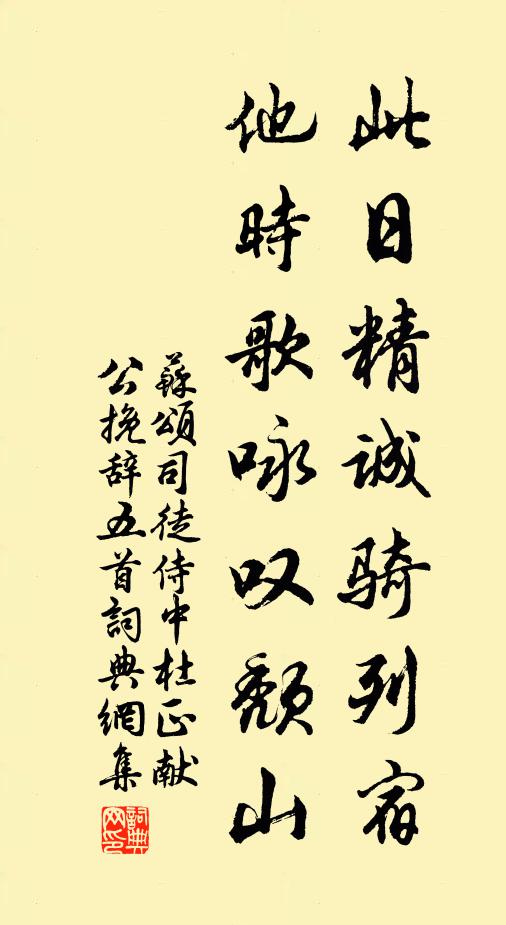 此日精诚骑列宿
他時歌咏叹颓山
蘇頌司徒侍中杜正献
公挽辞五首詞典網集
詞典
网印